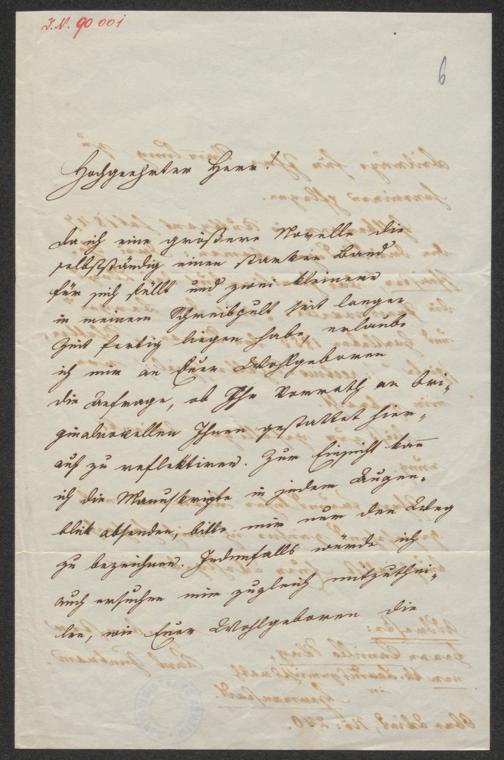 J.N. 90001
6
Hochgeehrter Herr!
Da ich eine größere Novelle die
selbstständig einen starken Band
für sich füllt und zwei kleinere
in meinem Schreibpult seit langer
Zeit fertig liegen habe, erlaube
ich mir an Euer Wohlgeboren
die Anfrage, ob Ihr Vorrath an Ori-
ginalnovellen Ihnen gestattet hier-
auf zu reflektiren. Zur Einsicht kan
ich die Manuskripte in jedem Augen-
blik absenden, bitte mir nur den Weg
zu bezeichnen. Jedenfalls würde ich
auch ersuchen mir zugleich mitzuthei-
len, wie Euer Wohlgeboren die